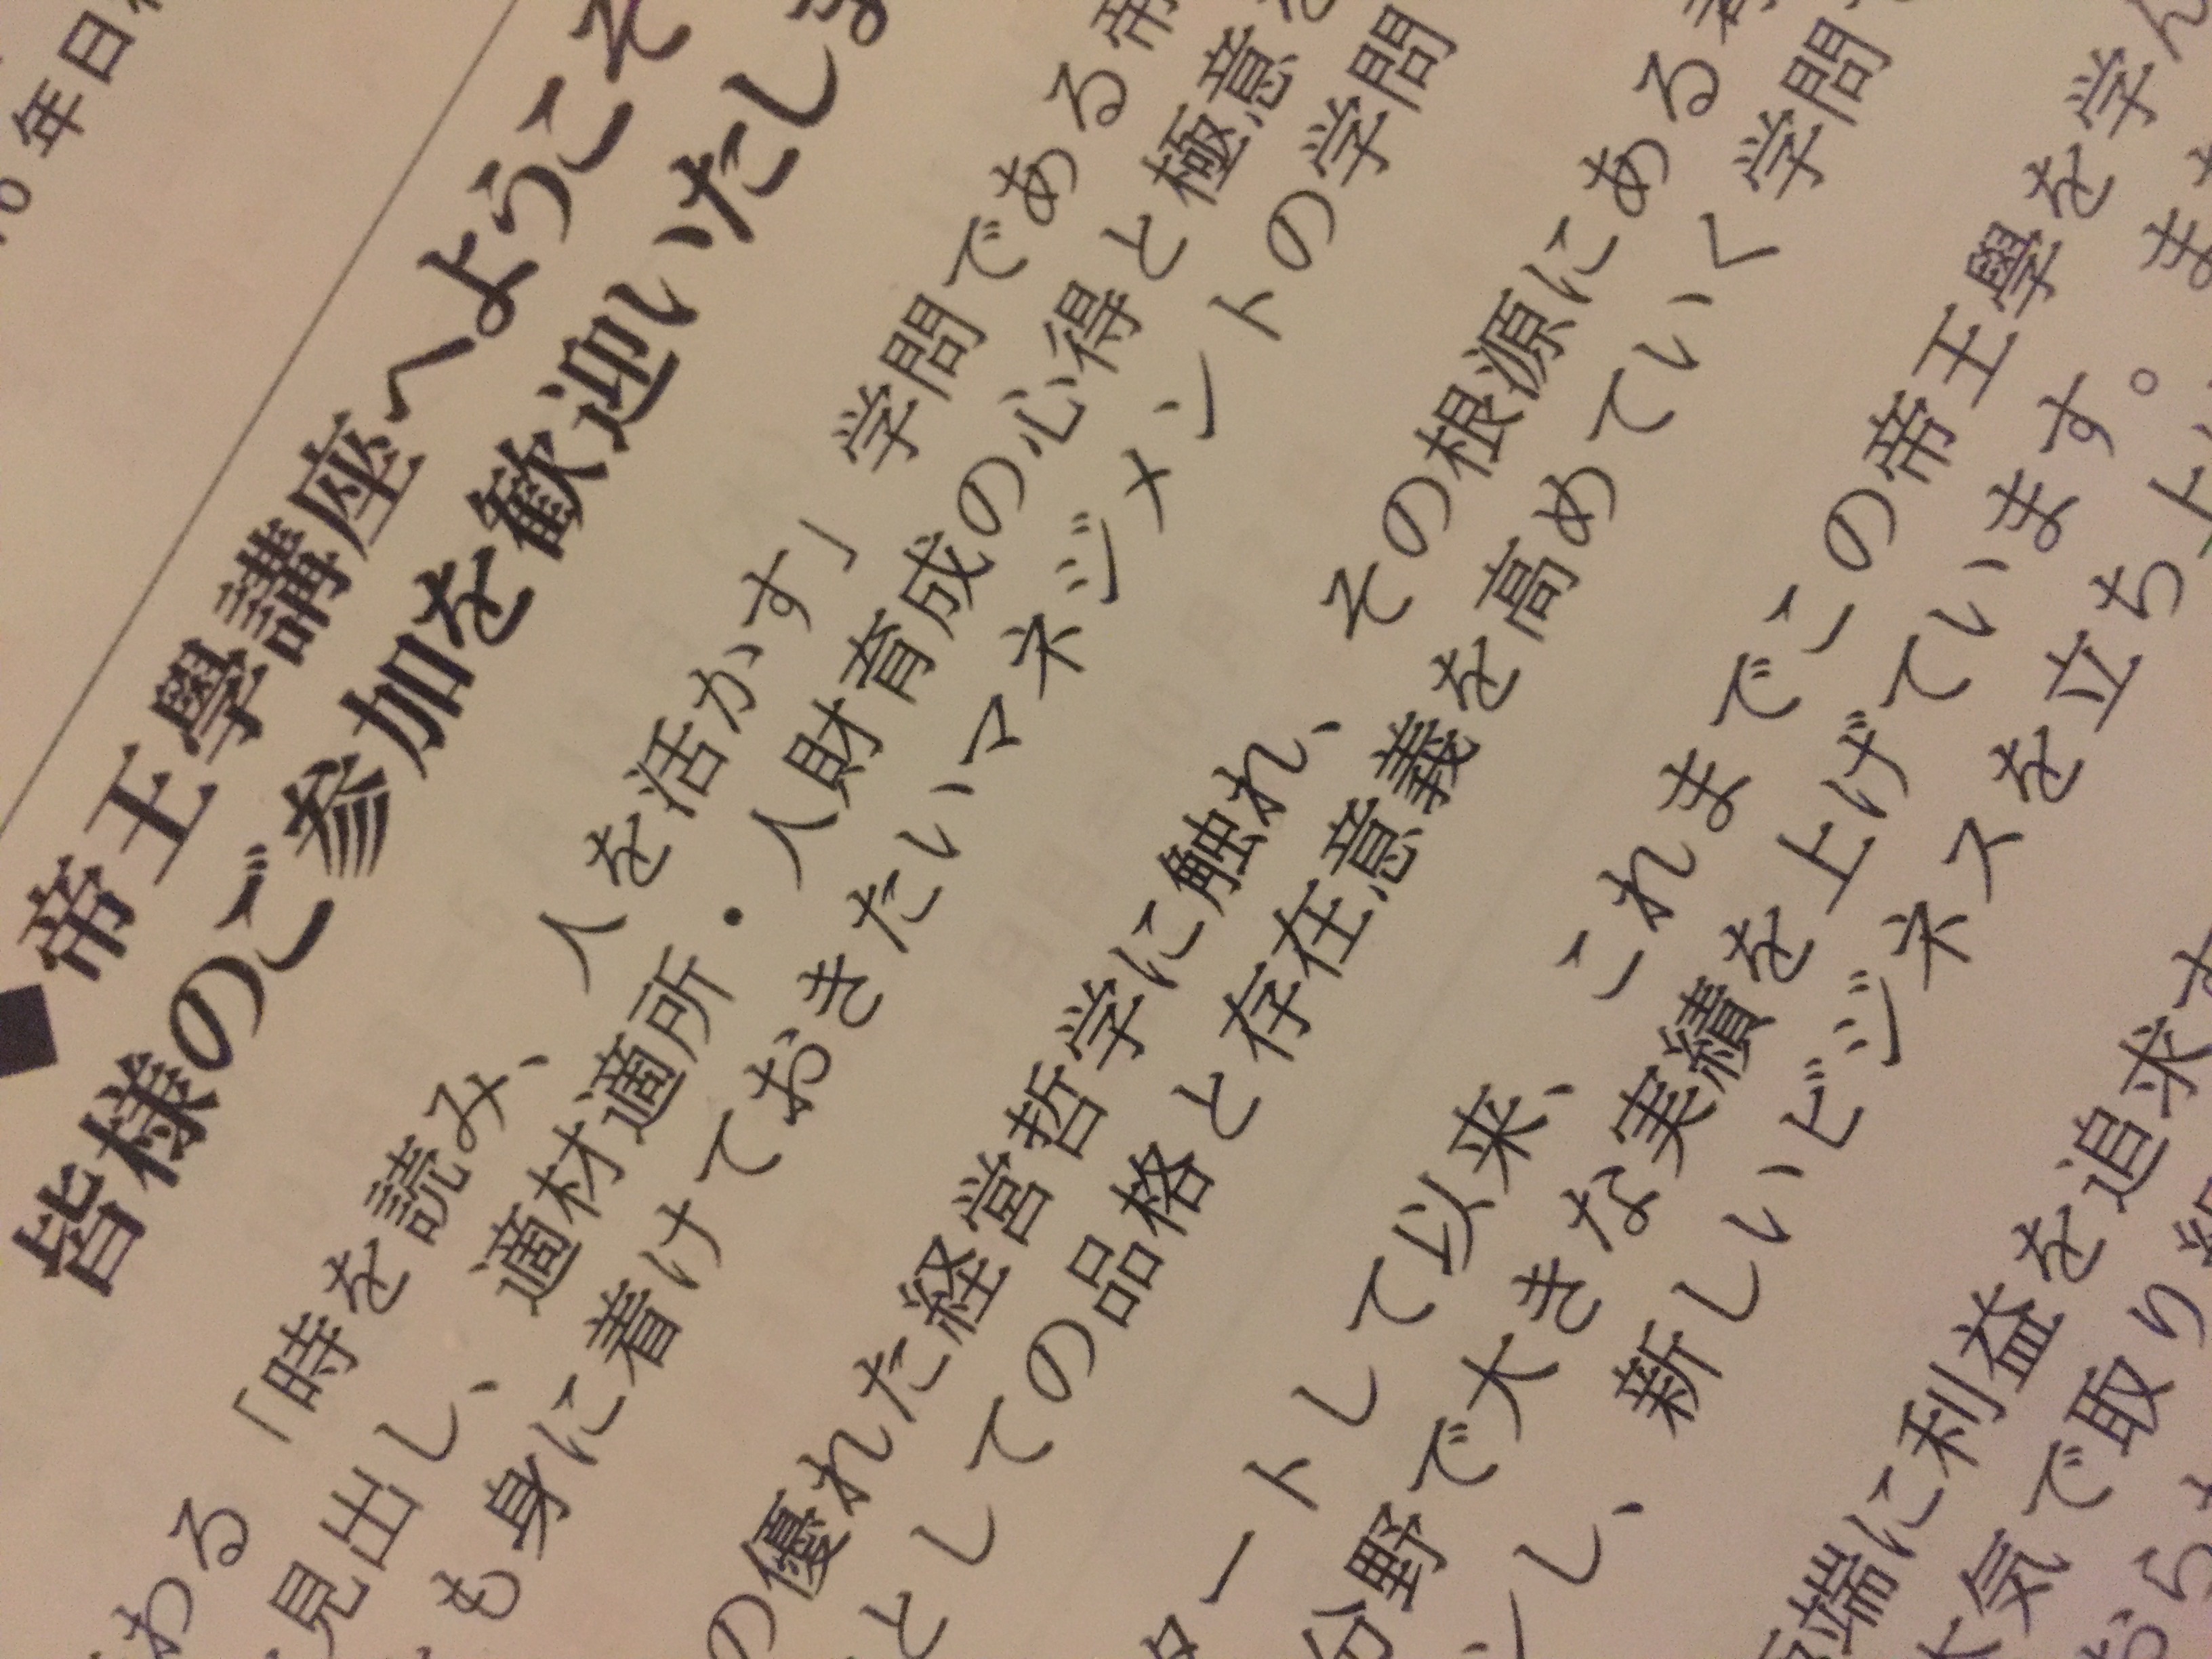 年日
帝王學講座へようこそ
皆様のご参加を歓迎いたしま
わる「時を読み、人を活かす」学問である帝
見出し、適材適所・人財育成の心得と極意を
も身に着けておきたいマネジメントの学問
の優れた経営哲学に触れ、その根源にある
としての品格と存在意義を高めていく学問
タートして以来、これまでこの帝王學を学ん
分野で大きな実績を上げています。ま
し、新しいビジネスを立ち上
端に利益を追求す
本気で取り組